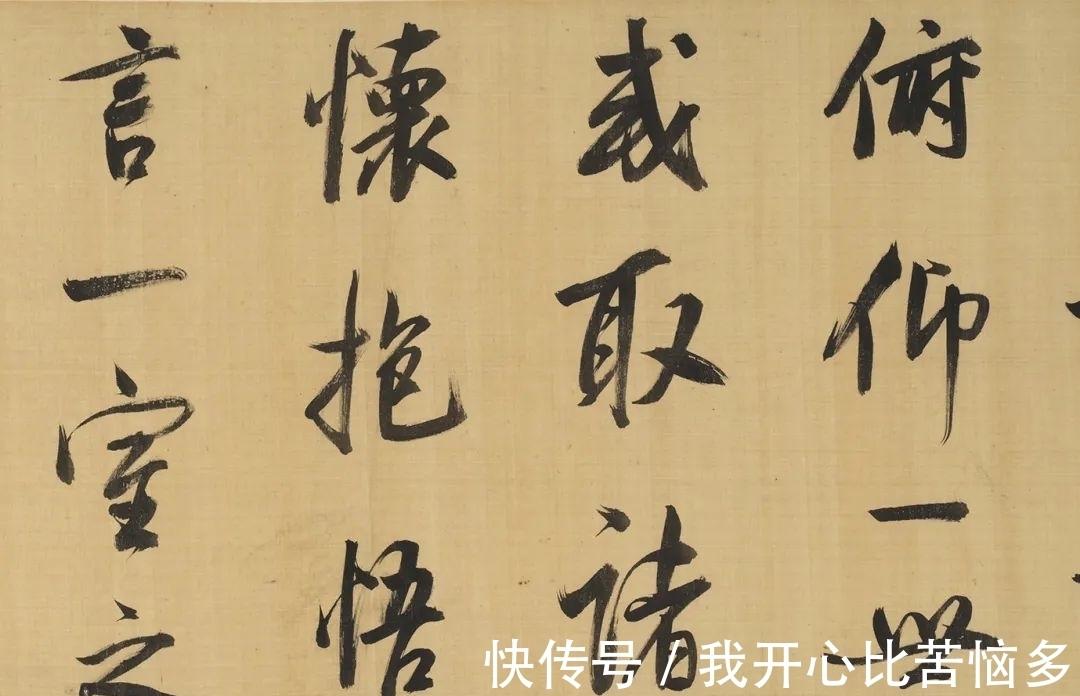 俯仰一世
或取諸
懷抱悟
言一室之
快传号 / 我开心比苦恼多